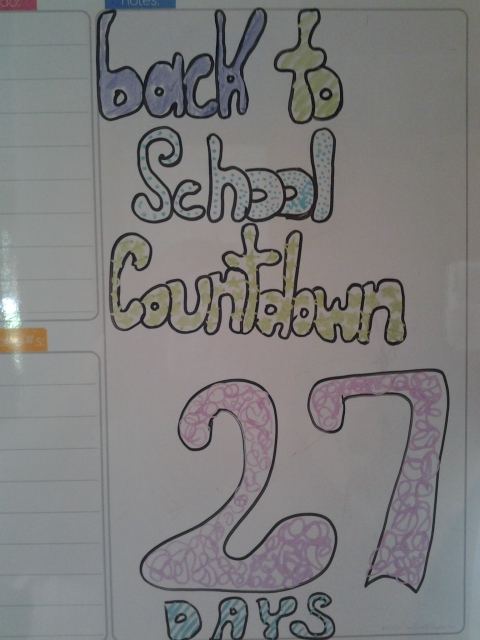 notes:
back to
School
Countdown
27
DAYS